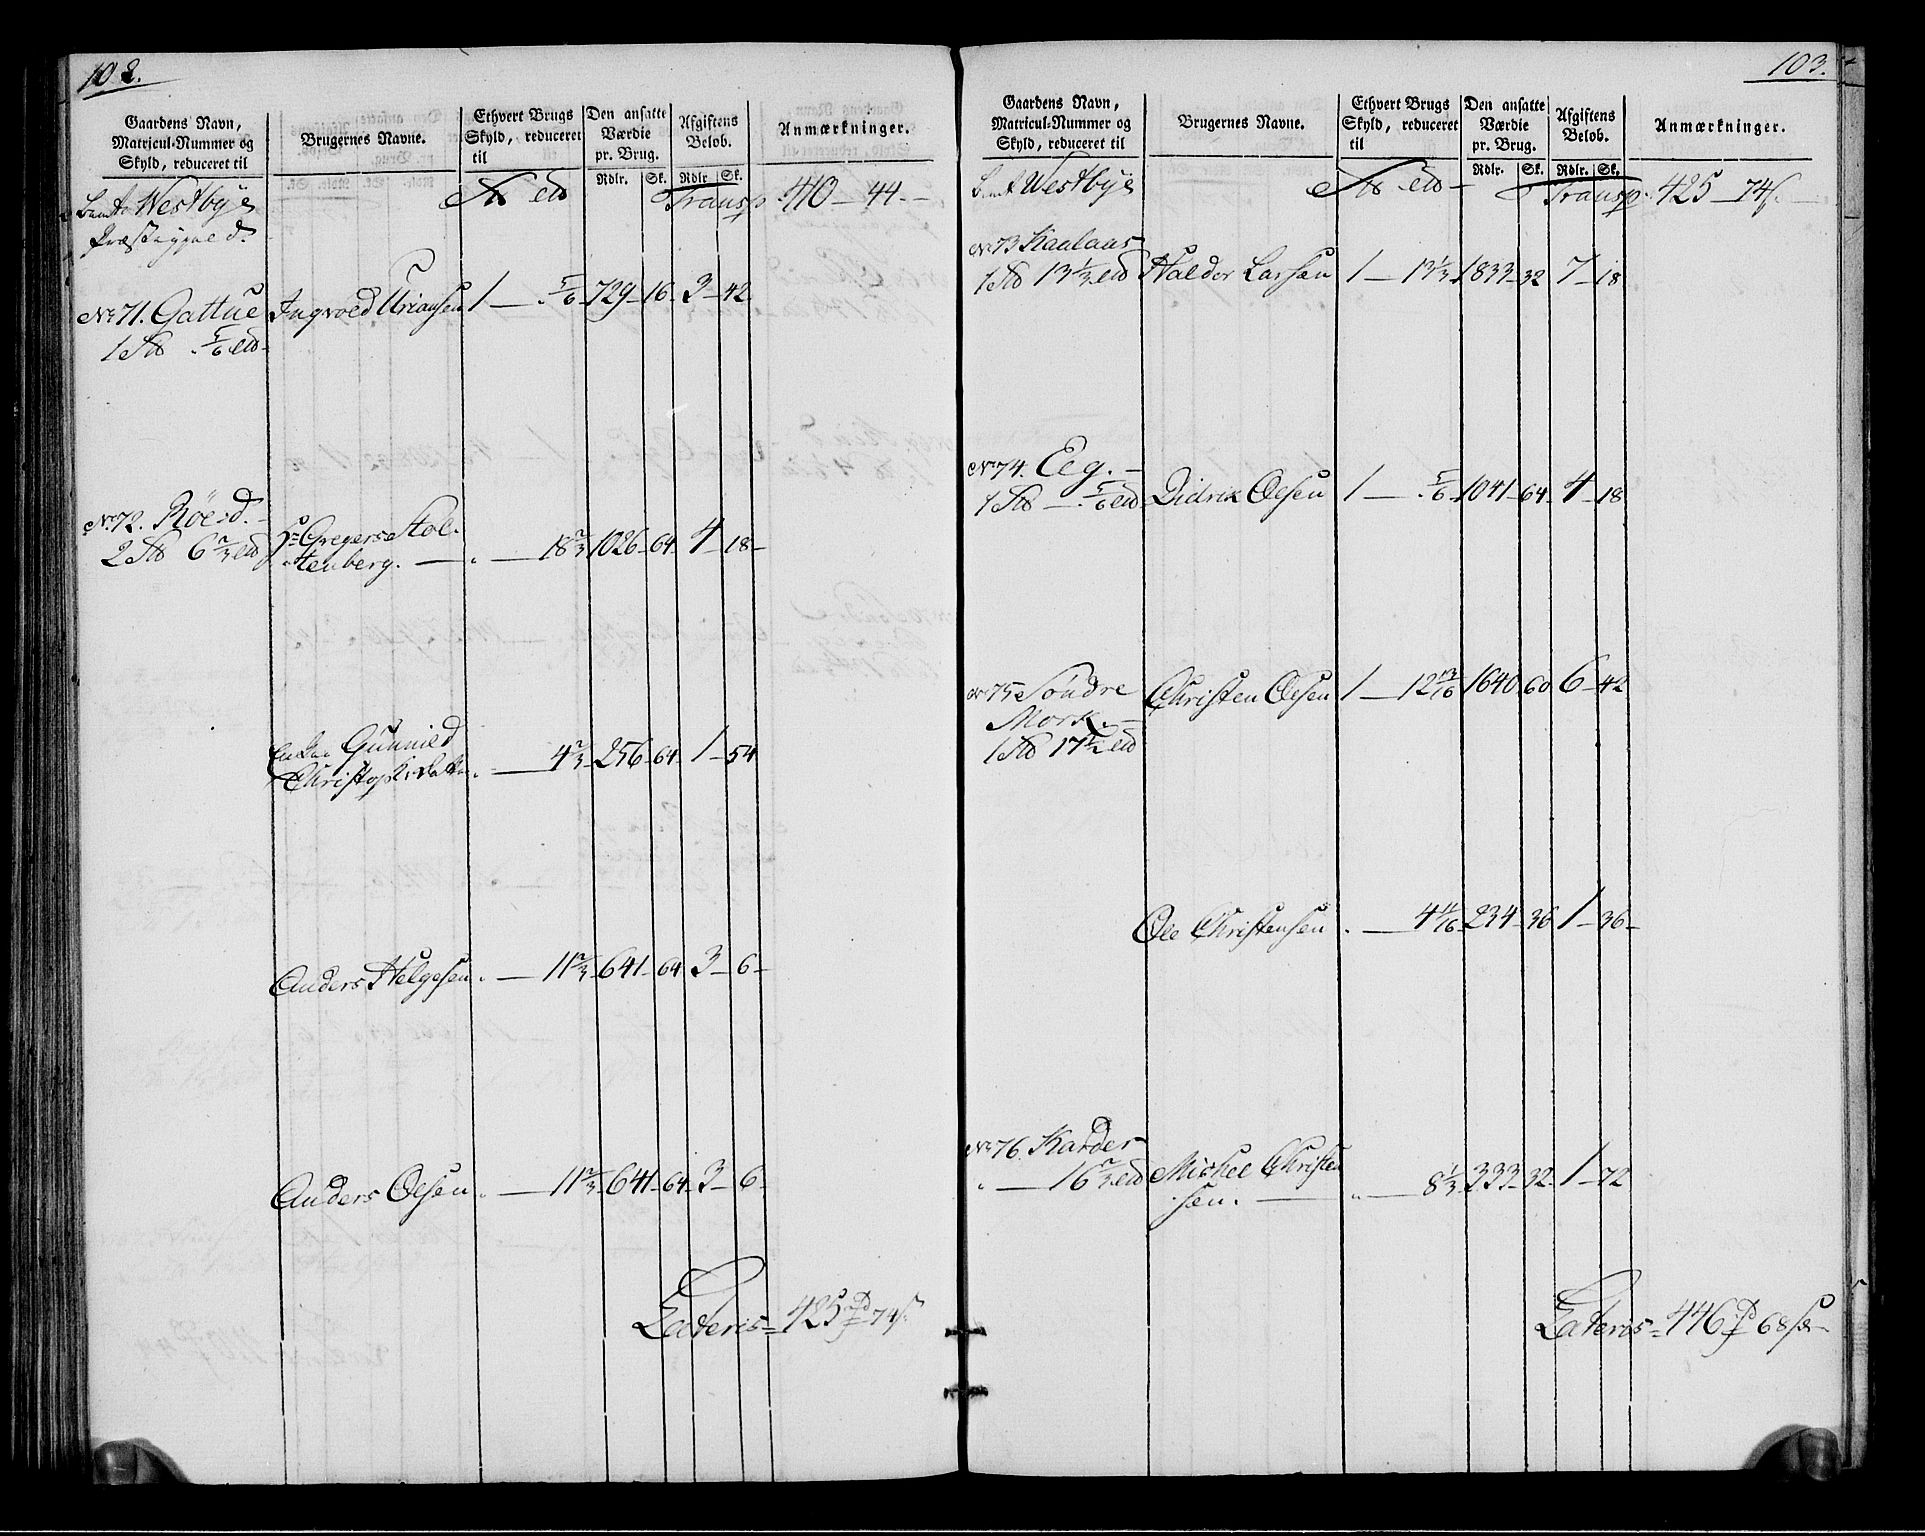 102.
Gaardens Navn,
Matricul-Nummer og
Skyld, reduceret til
Brugernes Navne.
Ethvert Brugs
Skyld, reduceret
til
Den ansatte
Værdie
pr. Brug.
Rdlr. Sk.
Afgiftens
Beløb.
Rdlr Sk.
Anmærkninger.
Westbye Transp 410 - 44 -
Præstegield.
No 71. Gattue Ingvold Uriansen 1 - . 5/6 - 729 - 16 - 3 - 42
1 . 5/6
No 72. Röed. Hr Gregers Stol-
2 6 2/3 tenberg. - " - 18 2/3 - 1026 - 64 - 4 - 18 -
Gunnild
" - 4 2/3 - 256 - 64 - 1 - 54
Anders Helgesen " - 11 2/3 - 641 - 64 - 3 - 6 -
Anders Olsen " - 11 2/3 - 641 - 64 - 3 - 6 -
Lateris = 425 - 74
103.
Gaardens Navn,
Matricul-Nummer og
Skyld, reduceret til
Brugernes Navne.
Ethvert Brugs
Skyld, reduceret
til
Den ansatte
Værdie
pr. Brug.
Rdlr. Sk.
Afgiftens
Beløb.
Rdlr. Sk.
Anmærkninger.
Westbye Transp 425 - 74
No 73 Kaalaas
1 13 1/3 Halvor Larsen 1 - 13 1/3 - 1833 - 32 7 - 18
No 74. Eeg. -
1 - . 5/6 Didrik Olsen 1 - . 5/6 - 1041 - 64 - 4 - 18
No 75 Söndre Christen Olsen 1 - 12 13/16 1640 - 60 6 - 42
Mork. -
1 17 1/2
Ole Christensen . - 4 11/16 - 234 - 36 1 - 36 -
No 76. Karder
" - 16 2/3 Michel Christen
sen. - " - 8 1/3 - 333 - 32 - 1 - 72
Lateris = 446 - 68